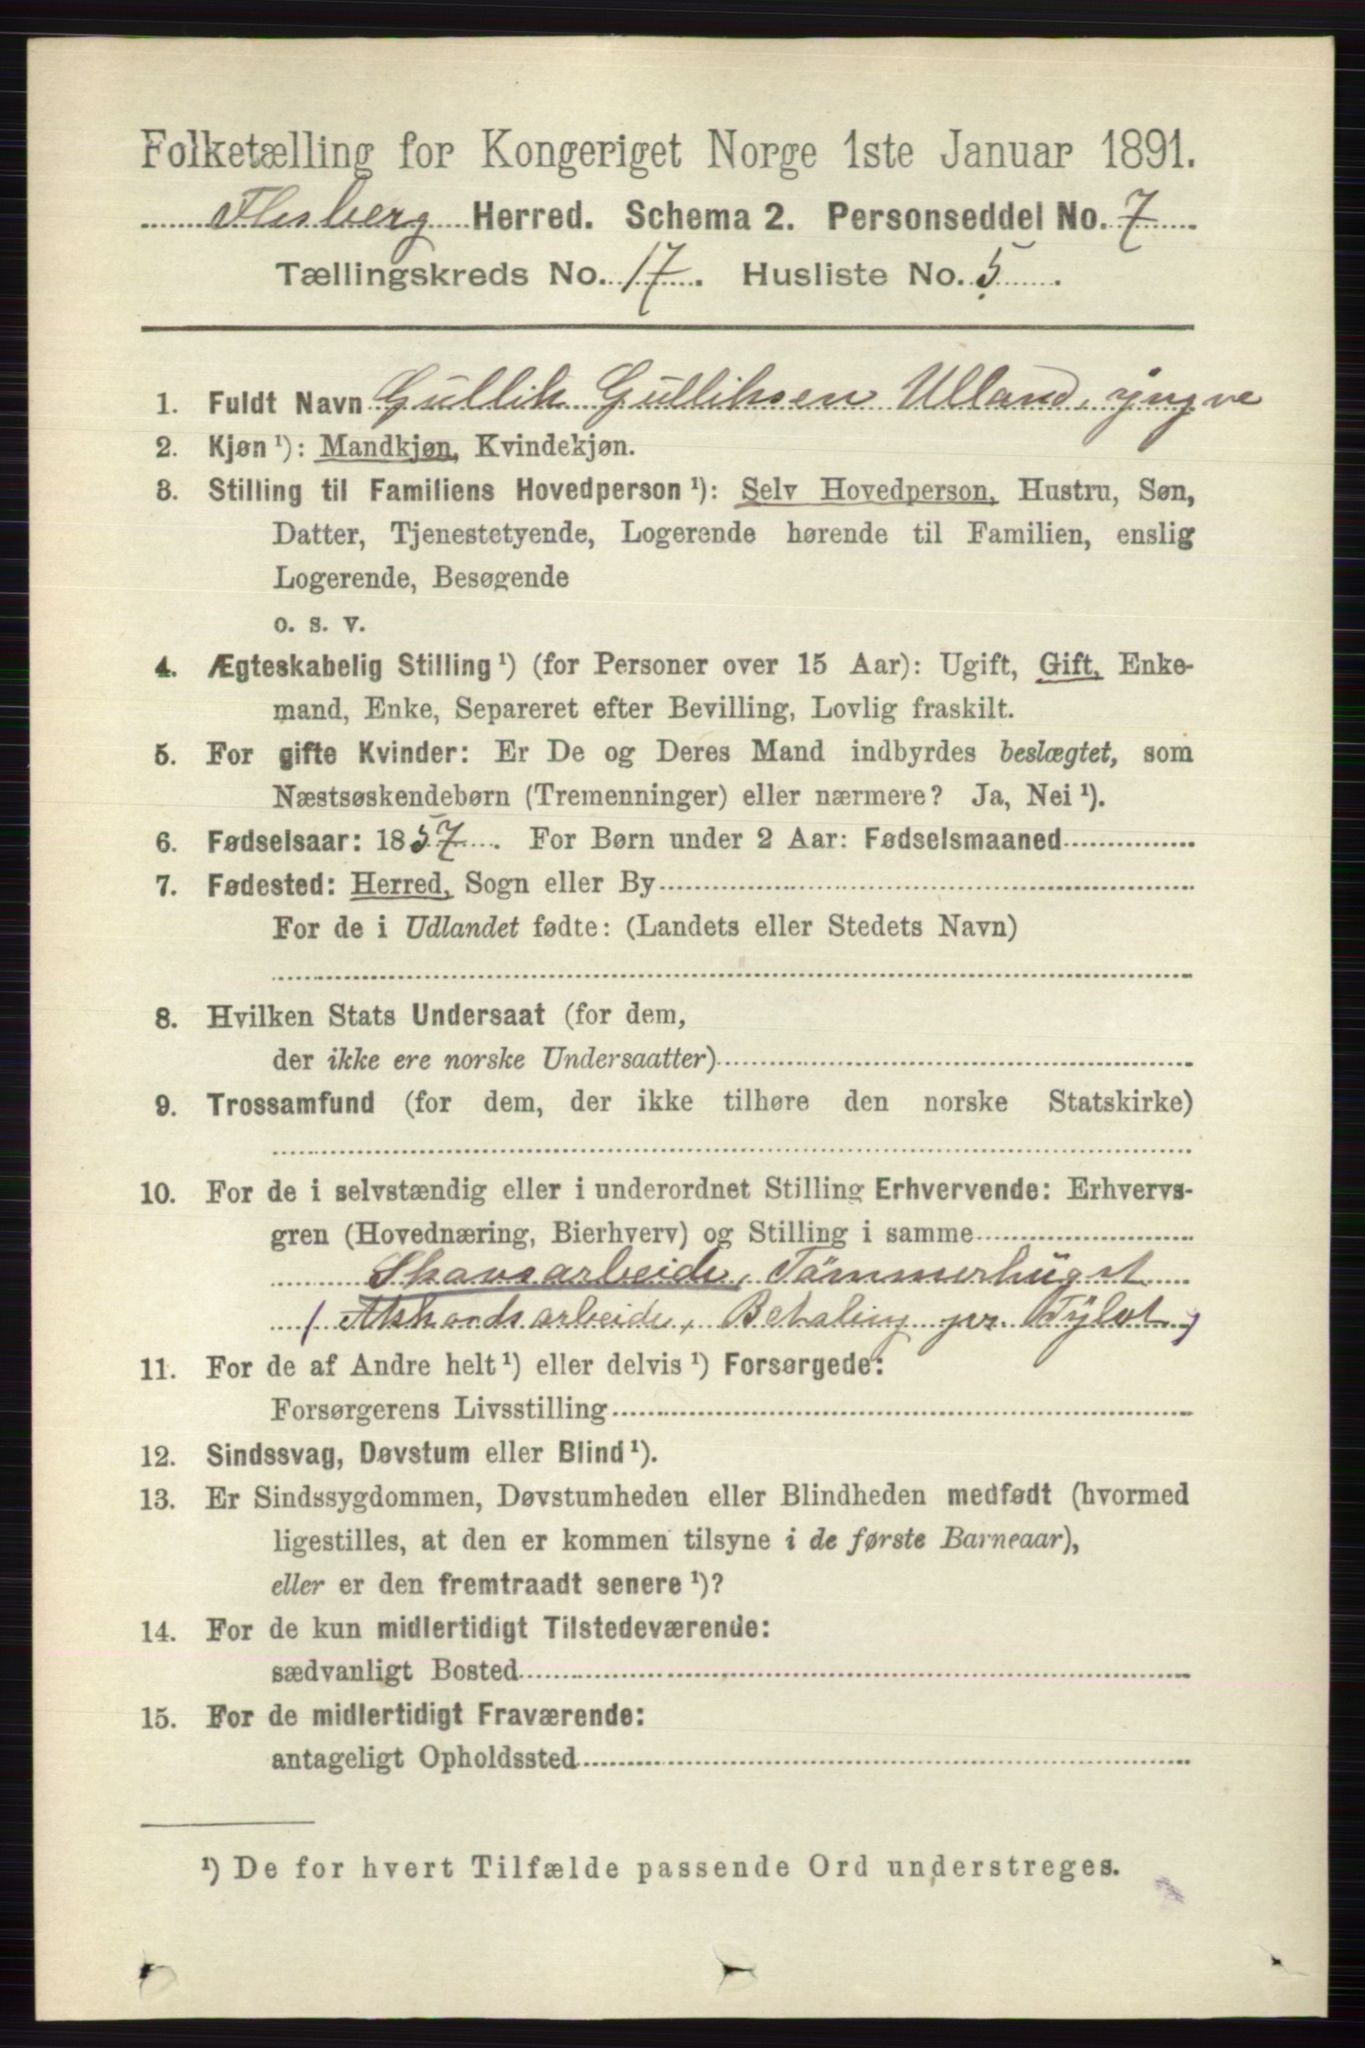 Folketælling for Kongeriget Norge 1ste Januar 1891.
Flesberg Herred. Schema 2. Personseddel No. 7
Tællingskreds No. 17. Husliste No. 5.
1. Fuldt Navn Gullik Gulliksen Ulland, yngre
2. Kjøn ¹): Mandkjøn, Kvindekjøn.
3. Stilling til Familiens Hovedperson ¹): Selv Hovedperson, Hustru, Søn,
Datter, Tjenestetyende, Logerende hørende til Familien, enslig
Logerende, Besøgende
o. s. v.
4. Ægteskabelig Stilling ¹) (for Personer over 15 Aar): Ugift, Gift, Enke-
mand, Enke, Separeret efter Bevilling, Lovlig fraskilt.
5. For gifte Kvinder: Er De og Deres Mand indbyrdes beslægtet, som
Næstsøskendebørn (Tremenninger) eller nærmere? Ja, Nei ¹).
6. Fødselsaar: 1857. For Børn under 2 Aar: Fødselsmaaned
7. Fødested: Herred, Sogn eller By
For de i Udlandet fødte: (Landets eller Stedets Navn)
8. Hvilken Stats Undersaat (for dem,
der ikke ere norske Undersaatter)
9. Trossamfund (for dem, der ikke tilhøre den norske Statskirke)
10. For de i selvstændig eller i underordnet Stilling Erhvervende: Erhvervs-
gren (Hovednæring, Bierhverv) og Stilling i samme
Skovsarbeide, Tømmerhugst
(Akkordsarbeide, Betaling pr. Tylvt,)
11. For de af Andre helt ¹) eller delvis ¹) Forsørgede:
Forsørgerens Livsstilling
12. Sindssvag, Døvstum eller Blind ¹).
13. Er Sindssygdommen, Døvstumheden eller Blindheden medfødt (hvormed
ligestilles, at den er kommen tilsyne i de første Barneaar),
eller er den fremtraadt senere ¹)?
14. For de kun midlertidigt Tilstedeværende:
sædvanligt Bosted
15. For de midlertidigt Fraværende:
antageligt Opholdssted
¹) De for hvert Tilfælde passende Ord understreges.